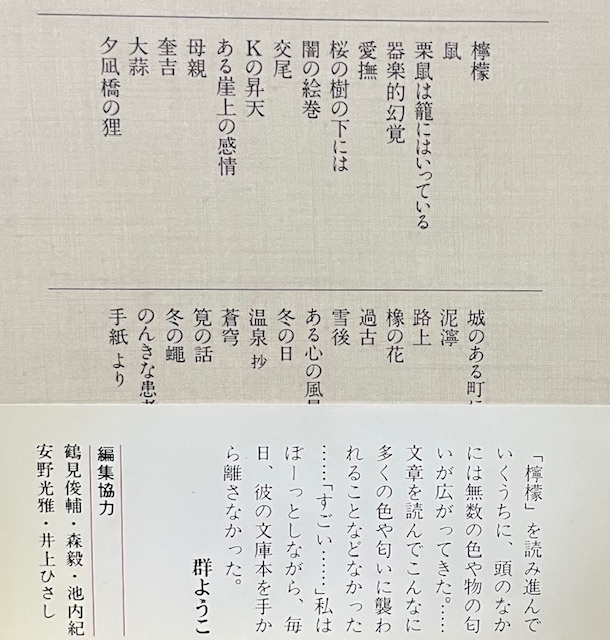 檸檬
鼠
栗鼠は籠にはいっている
器楽的幻覚
愛撫
桜の樹の下には
闇の絵巻
交尾
Kの昇天
ある崖上の感情
母親
奎吉
大蒜
夕凪橋の狸
城のある町に
泥濘
路上
橡の花
過古
雪後
ある心の風景
冬の日
温泉 抄
蒼穹
筧の話
冬の蠅
のんきな患者
手紙 より
「檸檬」を読み進んで
いくうちに、頭のなか
には無数の色や物の匂
いが広がってきた。……
文章を読んでこんなに
多くの色や匂いに襲わ
れることなどなかった
……「すごい……」私は
ぼーっとしながら、毎
日、彼の文庫本を手か
ら離さなかった。
群ようこ
編集協力
鶴見俊輔・森毅・池内紀
安野光雅・井上ひさし